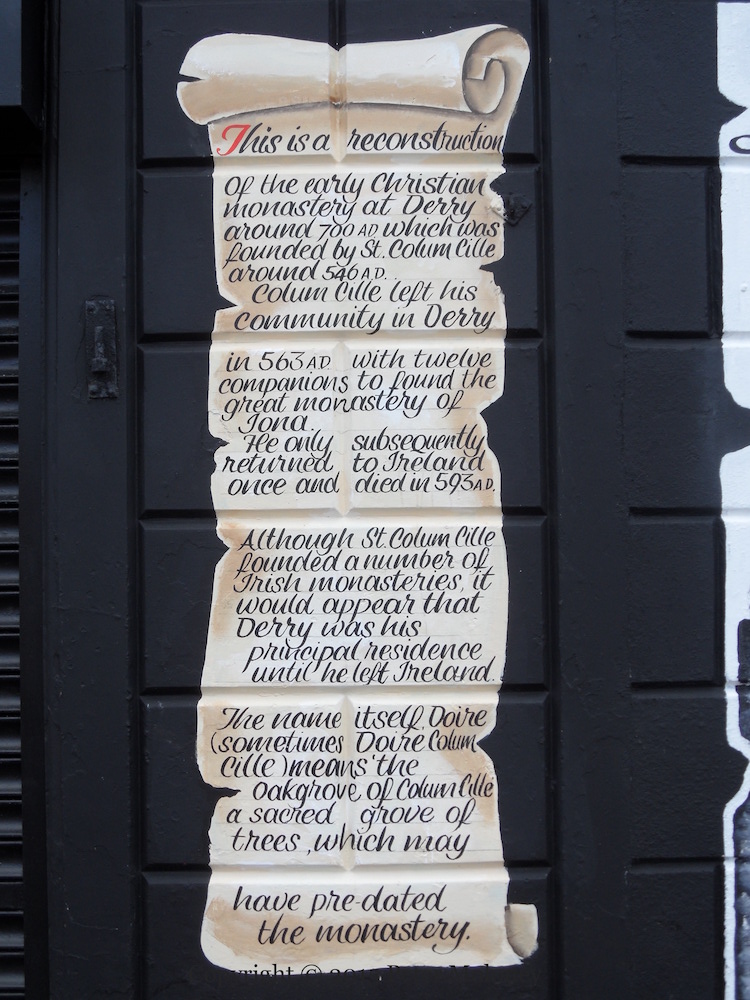 This is a reconstruction
Of the early Christian
monastery at Derry
around 700 AD which was
founded by St. Colum Cille
around 546 A.D.
Colum Cille left his
community in Derry
in 563 AD with twelve
companions to found the
great monastery of
Iona.
He only subsequently
returned to Ireland
once and died in 593 A.D.
Although St. Colum Cille
founded a number of
Irish monasteries, it
would appear that
Derry was his
principal residence
until he left Ireland.
The name itself, Doire
(sometimes Doire Colum
Cille) means 'the
oakgrove of Colum Cille
a sacred grove of
trees, which may
have pre-dated
the monastery.